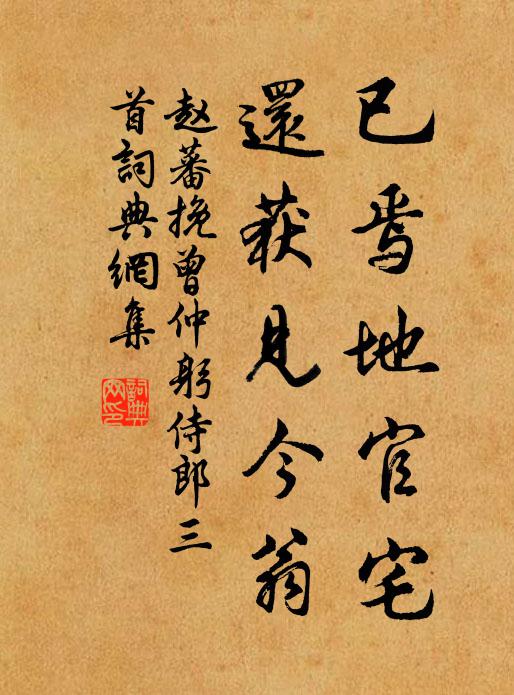 已焉地官宅
還获見今翁
赵蕃挽曾仲躬侍郎三
首詞典網集
詞典網印